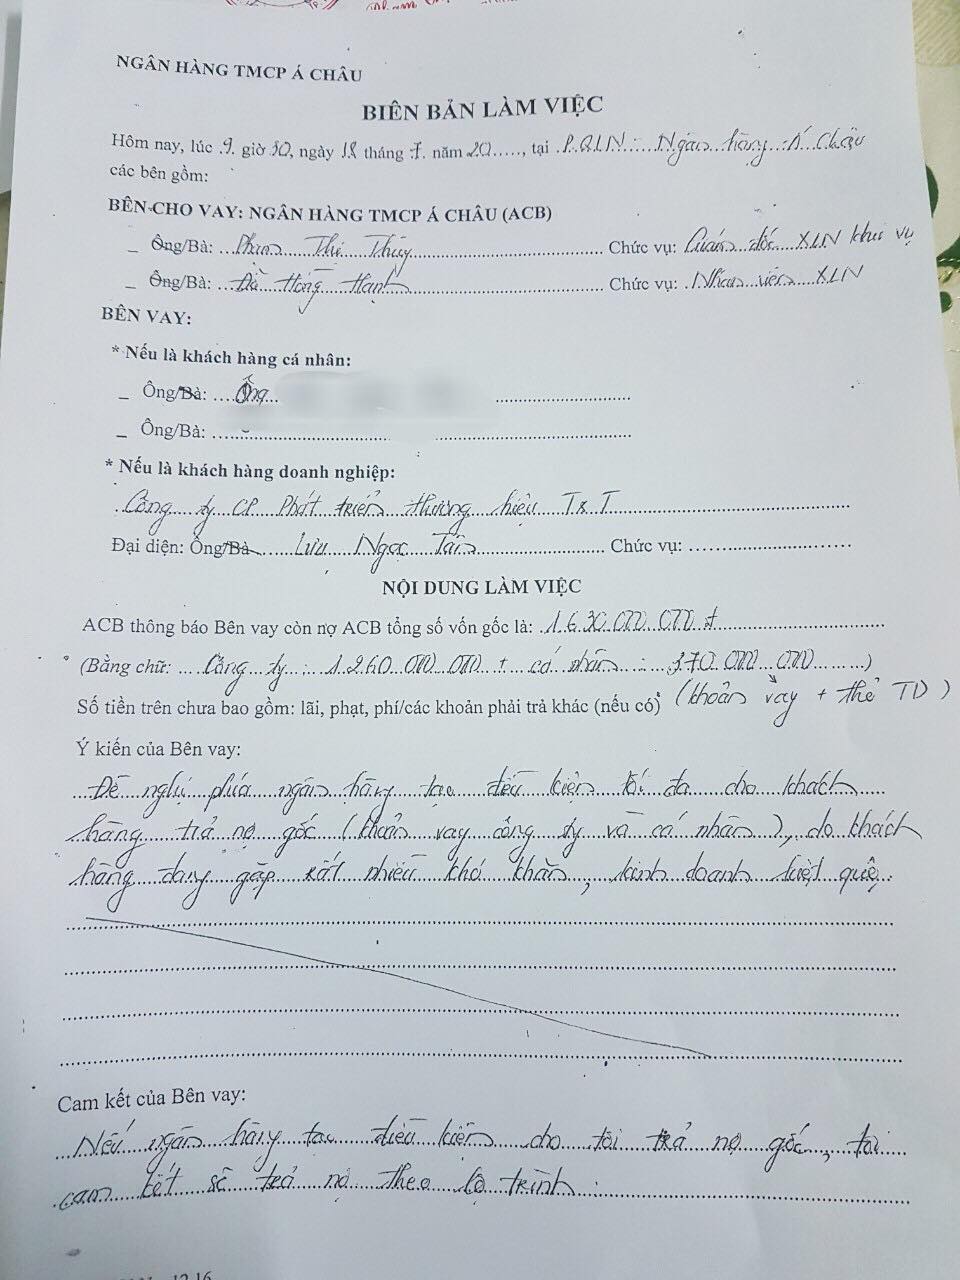 NGÂN HÀNG TMCP Á CHÂU
BIÊN BẢN LÀM VIỆC
Hôm nay, lúc .9. giờ 30, ngày 18 tháng .7. năm 20....., tại P.QLN.... Ngân hàng Á Châu
các bên gồm:
BÊN CHO VAY: NGÂN HÀNG TMCP Á CHÂU (ACB)
_ Ông/Bà: ..Phan Thị Thùy........ Chức vụ: Giám đốc XLN khu vụ
_ Ông/Bà: ...Đỗ Hồng Hạnh........ Chức vụ: .Nhân viên XLN
BÊN VAY:
* Nếu là khách hàng cá nhân:
_ Ông/Bà: ....Ông...
_ Ông/Bà: ........
* Nếu là khách hàng doanh nghiệp:
Công ty CP Phát triển thương hiệu TxT
Đại diện: Ông/Bà..... Lưu Ngọc Tấn........ Chức vụ: ........
NỘI DUNG LÀM VIỆC
ACB thông báo Bên vay còn nợ ACB tổng số vốn gốc là: .1.630.000.000 đ
(Bằng chữ: ... Công ty : 1.260.000.000 + cá nhân : 370.000.000........)
Số tiền trên chưa bao gồm: lãi, phạt, phí/các khoản phải trả khác (nếu có) (khoản vay + thẻ TD)
Ý kiến của Bên vay:
Đề nghị phía ngân hàng tạo điều kiện tối đa cho khách
hàng trả nợ gốc (khoản vay công ty và cá nhân), do khách
hàng đang gặp rất nhiều khó khăn, kinh doanh kiệt quệ.
Cam kết của Bên vay:
Nếu ngân hàng tạo điều kiện cho tôi trả nợ gốc, tôi
cam kết sẽ trả nợ theo lộ trình :
12.16